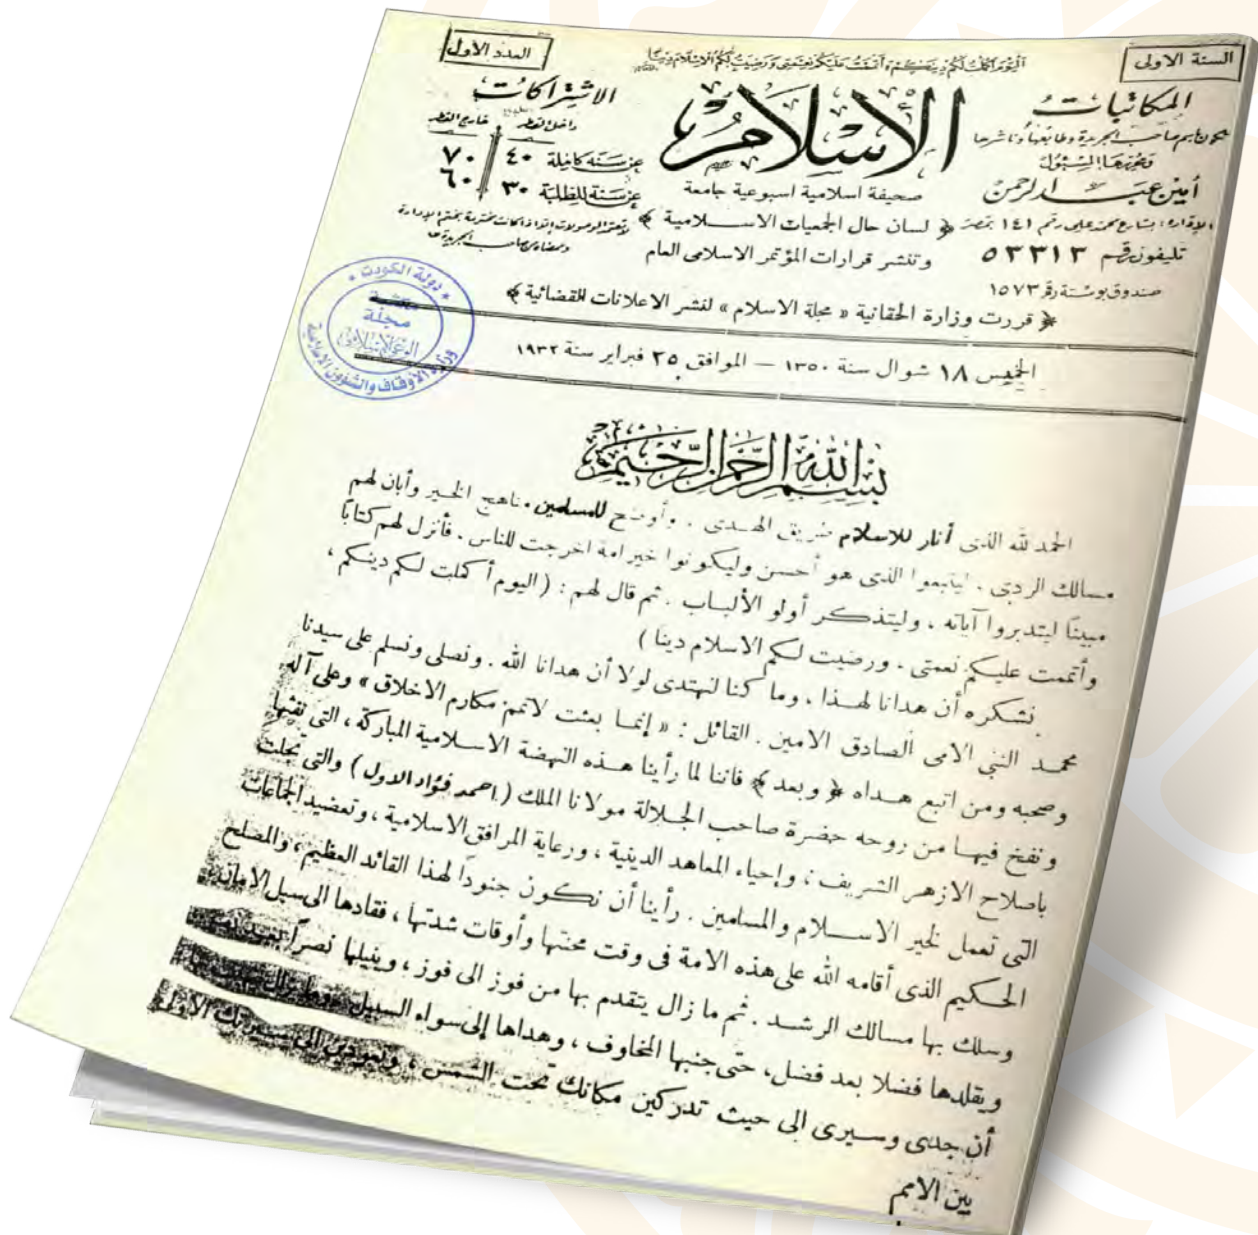 السنة الاولى
العدد الاول
اليوم أكملت لكم دينكم وأتممت عليكم نعمتي ورضيت لكم الإسلام دينا
المكاتبات
تكون باسم صاحب الجريدة وطابعها وناشرها
ومحررها المسئول
أمين عبد الرحمن
الإدارة: بشارع محمد علي رقم ١٤١ بمصر
تليفون رقم ٥٣٣١٣
صندوق بوستة رقم ١٥٧٣
الإسلام
صحيفة اسلامية اسبوعية جامعة
﴿ لسان حال الجمعيات الاسلامية ﴾
وتنشر قرارات المؤتمر الاسلامى العام
الاشتراكات
داخل القطر خارج القطر
عن سنة كاملة ٤٠ ٧٠
عن سنة للطلبة ٣٠ ٦٠
لا تعتبر الوصولات إلا إذا كانت مختومة بختم الإدارة
وبمضاة من صاحب الجريدة
﴿ قررت وزارة الحقانية « مجلة الاسلام » لنشر الاعلانات القضائية ﴾
دولة الكويت
مكتبة
مجلة
الوعي الإسلامي
وزارة الأوقاف والشؤون الإسلامية
الخميس ١٨ شوال سنة ١٣٥٠ — الموافق ٢٥ فبراير سنة ١٩٣٢
بسم الله الرحمن الرحيم
الحمد لله الذى أنار للاسلام طريق الهدى . وأوضح للمسلمين مناهج الخير وأبان لهم
مسالك الردى . ليتبعوا الذى هو أحسن وليكونوا خير امة اخرجت للناس . فأنزل لهم كتابًا
مبينًا ليتدبروا آياته ، وليتذكر أولو الألباب . ثم قال لهم : ( اليوم أكملت لكم دينكم ،
وأتممت عليكم نعمتى . ورضيت لكم الاسلام دينا )
نشكره أن هدانا لهذا ، وما كنا لنهتدى لولا أن هدانا الله . ونصلى ونسلم على سيدنا
محمد النبي الامى الصادق الامين . القائل : « إنما بعثت لاتمم مكارم الاخلاق » وعلى آله
وصحبه ومن اتبع هداه ﴿ وبعد ﴾ فاننا لما رأينا هذه النهضة الاسلامية المباركة ، التى نفثها
ونفخ فيها من روحه حضرة صاحب الجلالة مولانا الملك ( احمد فؤاد الاول ) والتى تجلت
باصلاح الازهر الشريف ، وإحياء المعاهد الدينية ، ورعاية المرافق الاسلامية ، وتعضيد الجماعات
التى تعمل لخير الاسلام والمسلمين . رأينا أن نكون جنودًا لهذا القائد العظيم ، والمصلح
الحكيم الذى أقامه الله على هذه الامة فى وقت محنتها وأوقات شدتها ، فقادها الى سبل الامان
وسلك بها مسالك الرشد . ثم ما زال يتقدم بها من فوز الى فوز ، وينيلها نصراً بعد
ويقلدها فضلا بعد فضل ، حتى جنبها المخاوف ، وهداها إلى سواء السبيل
أن جدى وسيرى الى حيث تدركين مكانك تحت الشمس ، وتعودى الى سيرتك الاولى
بين الامم